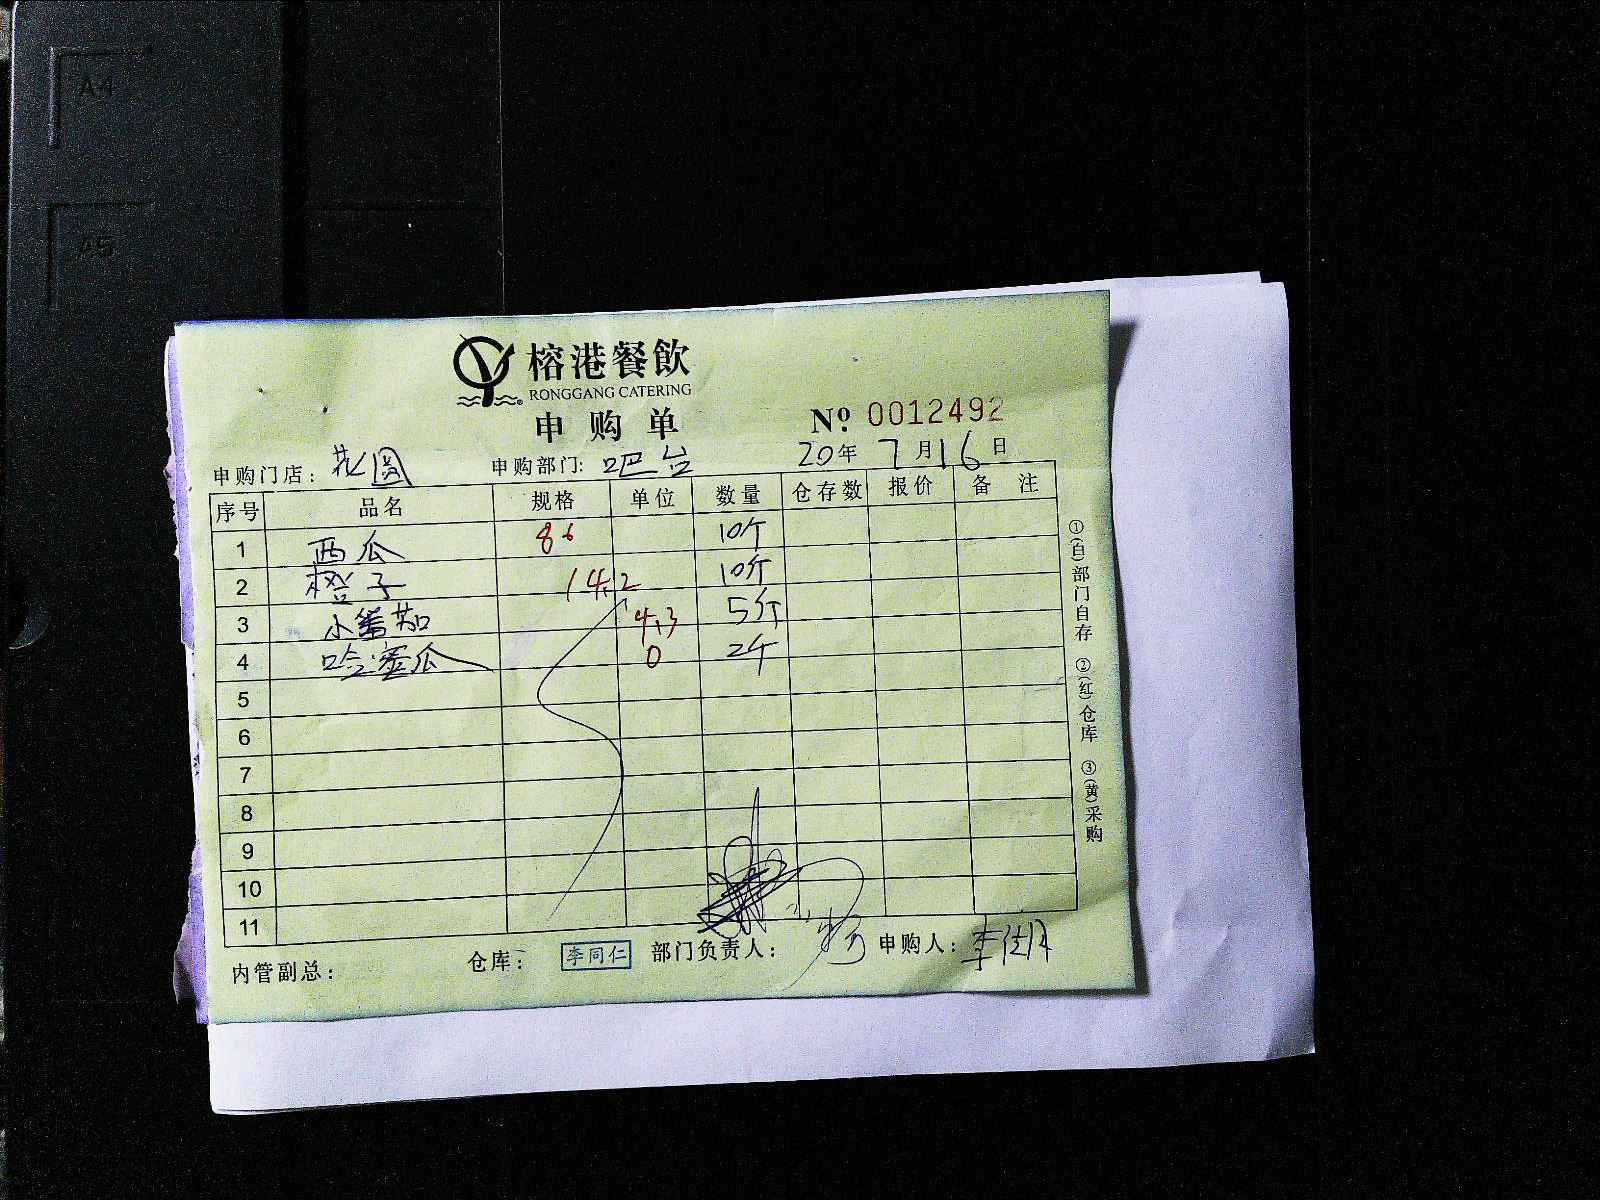 A4
A5
榕港餐飲
RONGGANG CATERING
申购单
№ 0012492
申购门店：花园 申购部门：吧台 20年7月16日
序号 品名 规格 单位 数量 仓存数 报价 备注
1 西瓜 86 10个
2 橙子 14.2 10斤
3 小番茄 4.3 5斤
4 哈蜜瓜 0 2个
5
6
7
8
9
10
11
内管副总： 仓库： 李同仁 部门负责人： 申购人：
①(白)部门自存 ②(红)仓库 ③(黄)采购